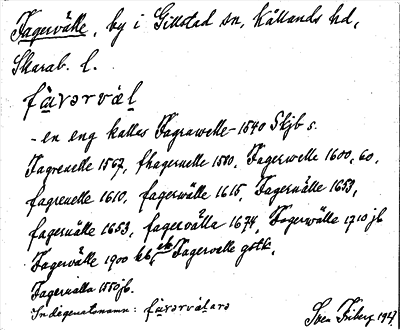 Fagervälle, by i Gillstad sn, Kållands hd,
Skarab. l.
fàvərvæ̀l
- en eng kallas Fagrawelle - 1540 Skjb s.
Fagreuelle 1567, fhageruelle 1580, Fagerwelle 1600, 60,
fagreuelle 1610, fagerwälle 1615, Fageruälle 1653,
fageruälle 1653, fagervälla 1674, Fagerwälle 1710 jb
Fagervälle 1900 kb, Fagervelle gstk.
Fageruälla 1550 jb.
Indegenatsnamn: fàvərvàlarə
Sven Friberg 1927.